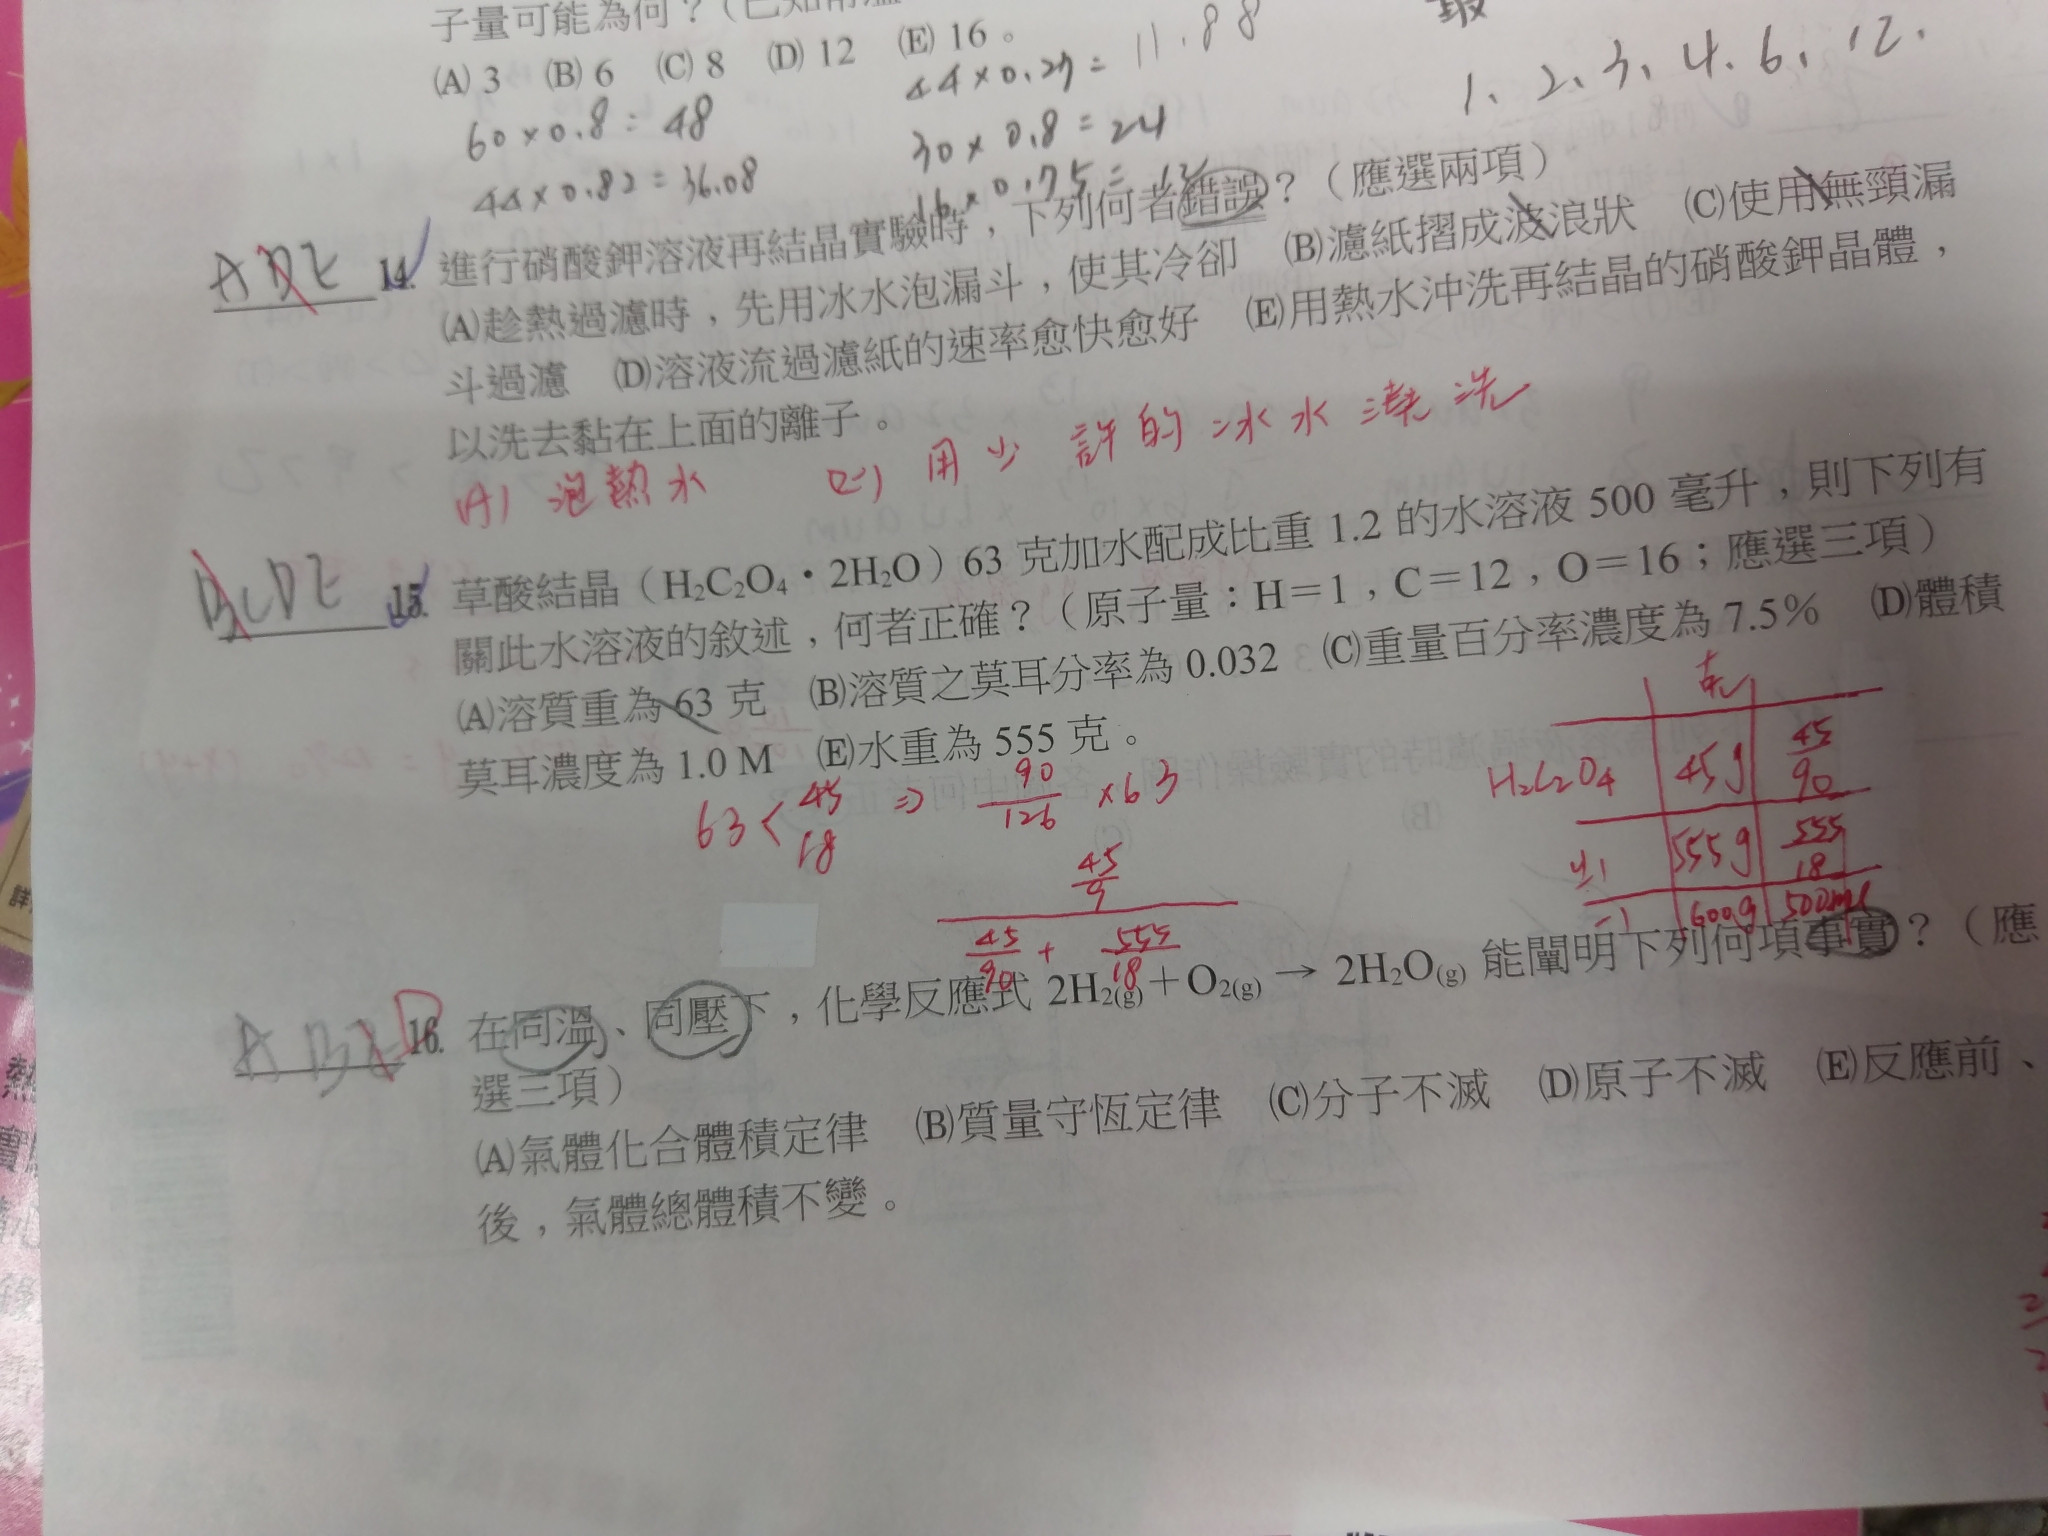 子量可能為何？（已知前
(A) 3　(B) 6　(C) 8　(D) 12　(E) 16。
44×0.27=11.88
1、2、3、4、6、12.
60×0.8=48
30×0.8=24
44×0.82=36.08
16×0.75=12
ADE 14. 進行硝酸鉀溶液再結晶實驗時，下列何者錯誤？（應選兩項）
(A)趁熱過濾時，先用冰水泡漏斗，使其冷卻　(B)濾紙摺成波浪狀　(C)使用無頸漏
斗過濾　(D)溶液流過濾紙的速率愈快愈好　(E)用熱水沖洗再結晶的硝酸鉀晶體，
以洗去黏在上面的離子。
(A) 泡熱水　(E) 用少許的冰水澆洗
BCDE 15. 草酸結晶（H₂C₂O₄・2H₂O）63 克加水配成比重 1.2 的水溶液 500 毫升，則下列有
關此水溶液的敘述，何者正確？（原子量：H＝1，C＝12，O＝16；應選三項）
(A)溶質重為 63 克　(B)溶質之莫耳分率為 0.032　(C)重量百分率濃度為 7.5%　(D)體積
莫耳濃度為 1.0 M　(E)水重為 555 克。
63 < 45 18 ⇒ 90/126 ×63
H₂C₂O₄ 45g 45/90
555g 555/18
600g 500ml
45/9
45/90 + 555/18
ABED 16. 在同溫、同壓下，化學反應式 2H₂(g)＋O₂(g) → 2H₂O(g) 能闡明下列何項事實？（應
選三項）
(A)氣體化合體積定律　(B)質量守恆定律　(C)分子不滅　(D)原子不滅　(E)反應前、
後，氣體總體積不變。